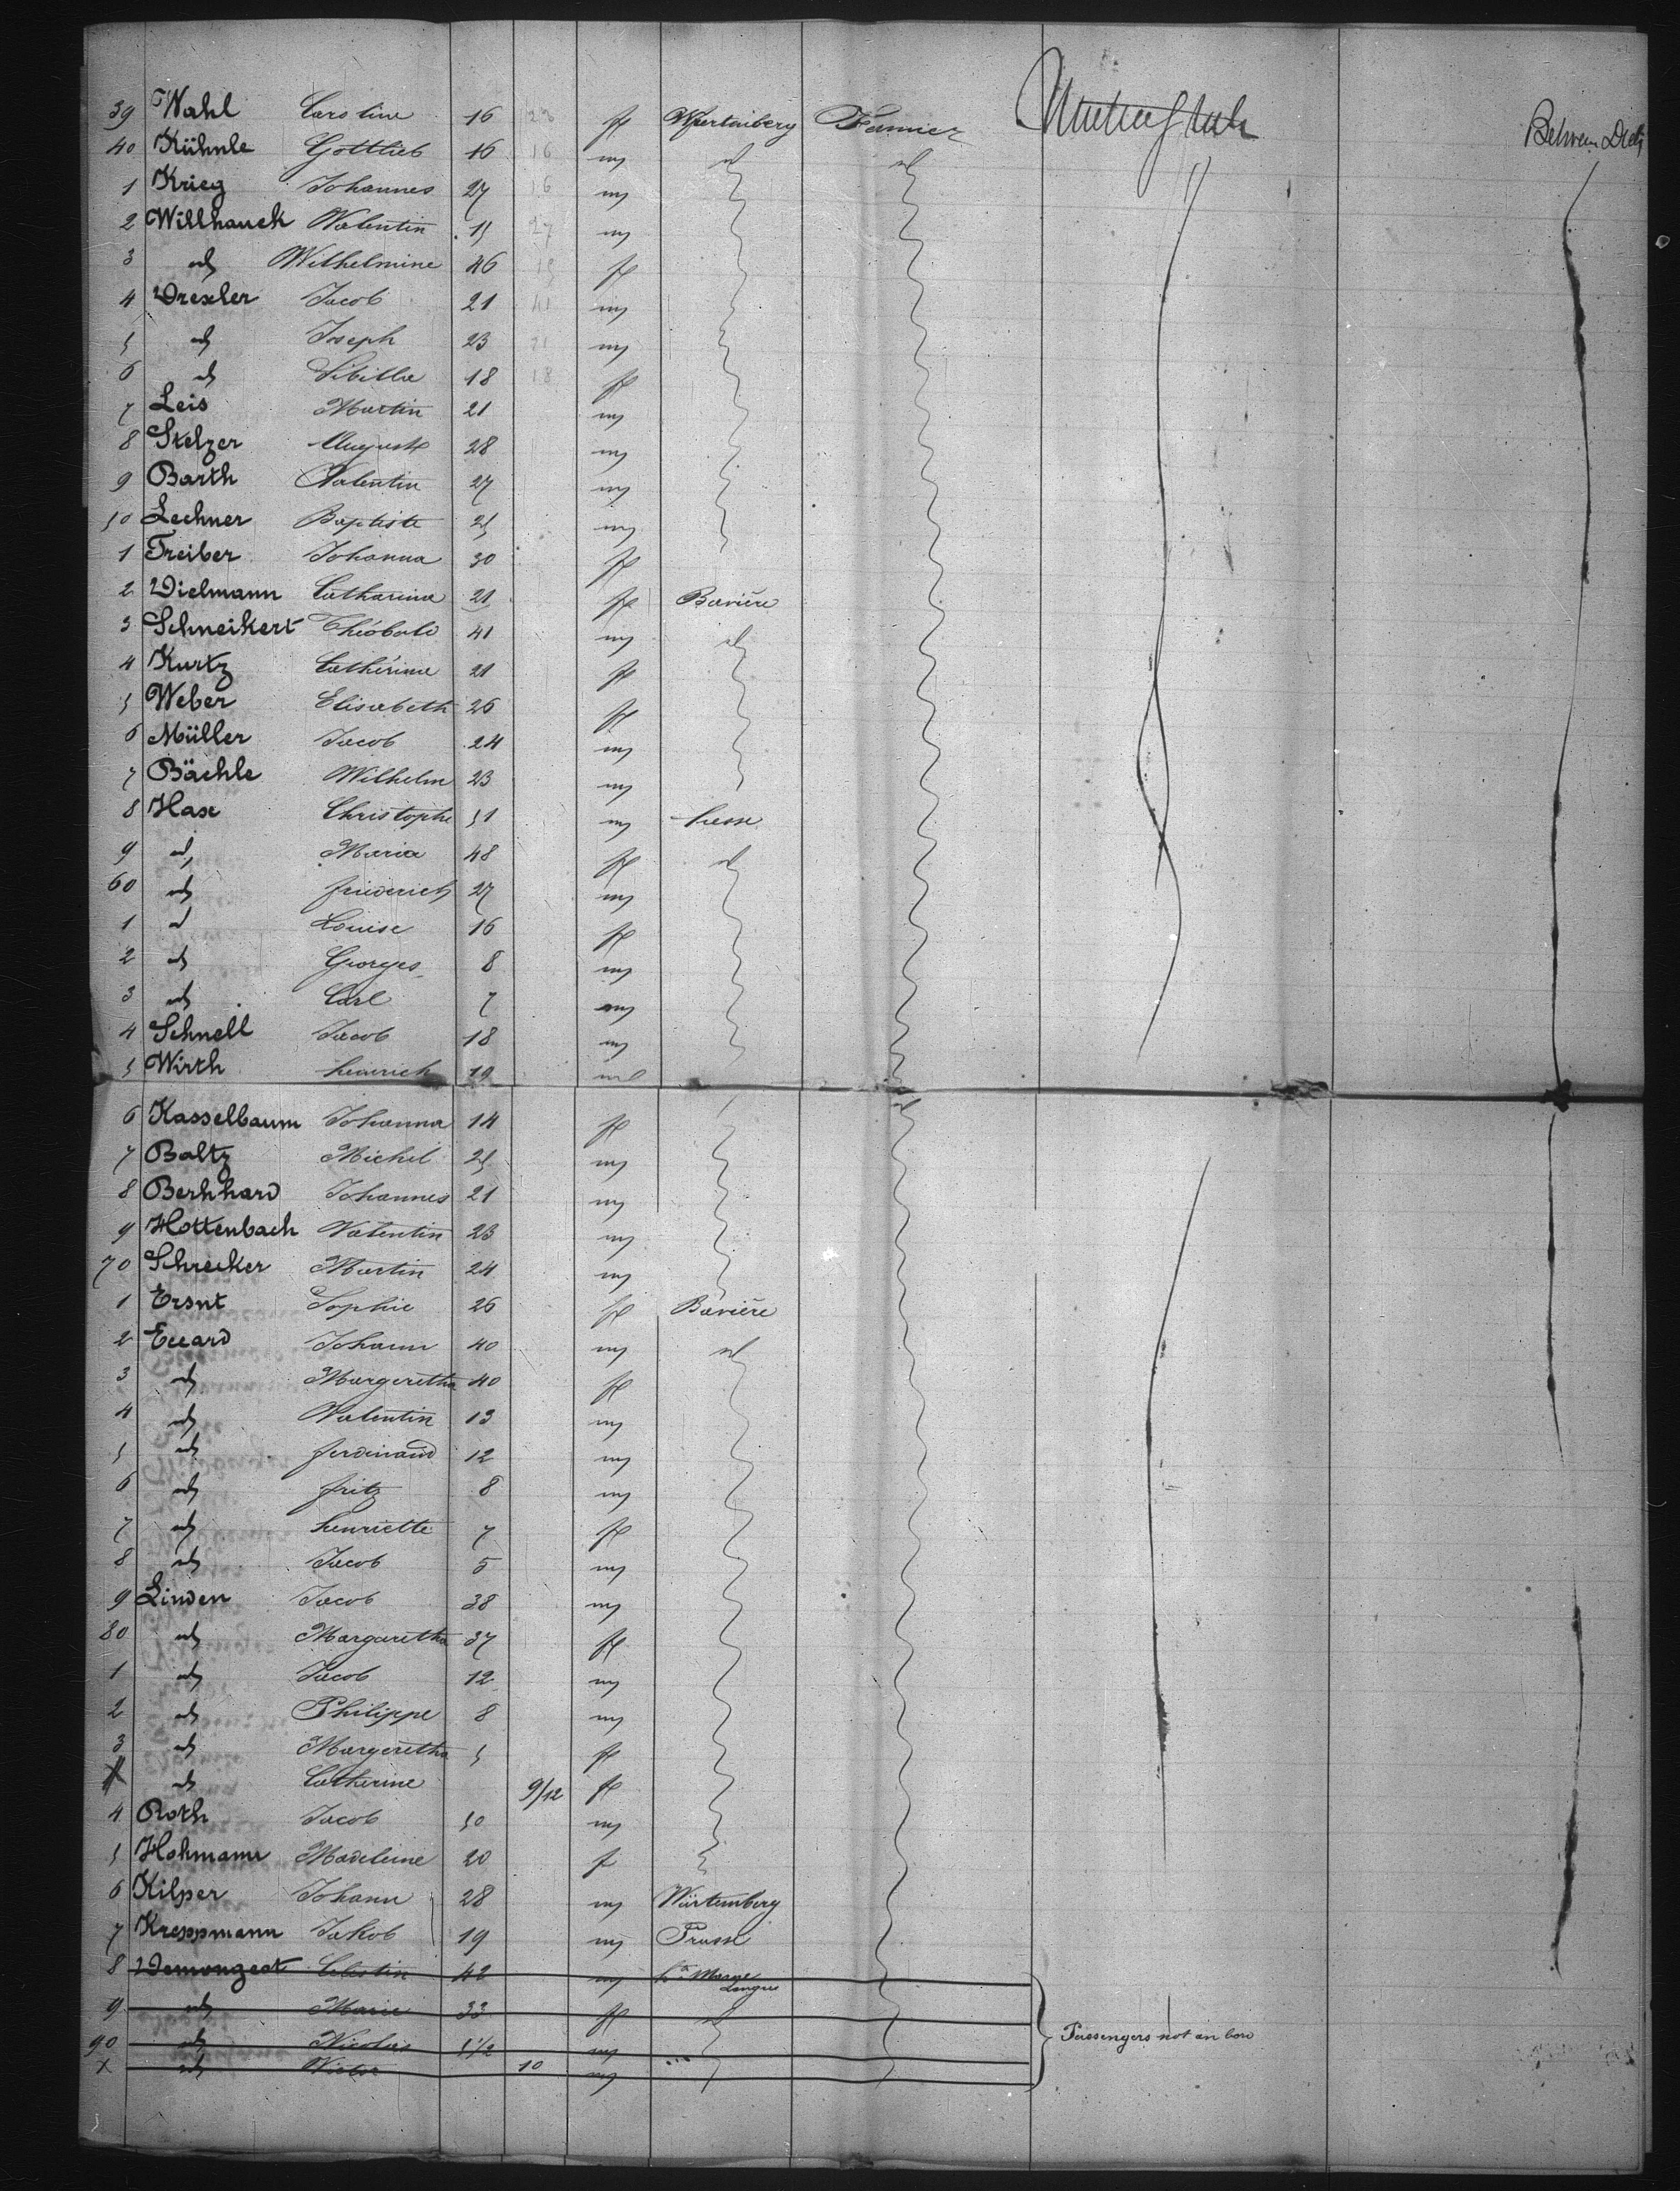 39 Wahl Caroline 16 f Wurtemberg Farmer United States Between Decks
40 Kühnle Gottlieb 16 m id id
1 Krieg Johannes 27 m
2 Willhauck Valentin 15 m
3 id Wilhelmine 46 f
4 Drexler Jacob 21 m
5 id Joseph 23 m
6 id Sibilla 18 f
7 Leis Martin 21 m
8 Stelzer August 28 m
9 Barth Valentin 27 m
50 Lechner Baptiste 25 m
1 Treiber Johanna 30 f
2 Dielmann Catharina 21 f Bavière
3 Schneikert Théobald 41 m id
4 Kurtz Cathérina 21 f
5 Weber Elisabeth 26 f
6 Müller Jacob 24 m
7 Bächle Wilhelm 23 m
8 Hax Christophe 51 m hesse
9 id Maria 48 f id
60 id friederich 27 m
1 id Louise 16 f
2 id Georges 8 m
3 id Carl 7 m
4 Schnell Jacob 18 m
5 Wirth heinrich 19 m
6 Kasselbaum Johanna 14 f id
7 Baltz Michel 25 m
8 Berhhard Johannes 21 m
9 Hottenbach Valentin 23 m
70 Schrecker Martin 24 m
1 Ersnt Sophie 26 f Bavière
2 Eccard Johann 40 m id
3 id Margeretha 40 f
4 id Valentin 13 m
5 id ferdinand 12 m
6 id fritz 8 m
7 id henriette 7 f
8 id Jacob 5 m
9 Linden Jacob 38 m
80 id Margaretha 37 f
1 id Jacob 12 m
2 id Philippe 8 m
3 id Margeretha 5 f
id Catherine 9/12 f
4 Roth Jacob 50 m
5 Hohmann Madeleine 20 f
6 Kilper Johann 28 m Würtemberg
7 Kreppmann Jakob 19 m Prusse
8 Demongeot Celestin 42 m hte Marne Langres
9 id Marie 33 f id
90 id Nicolas 5 1/2 m
x id Victor 10 m
Passengers not on bord